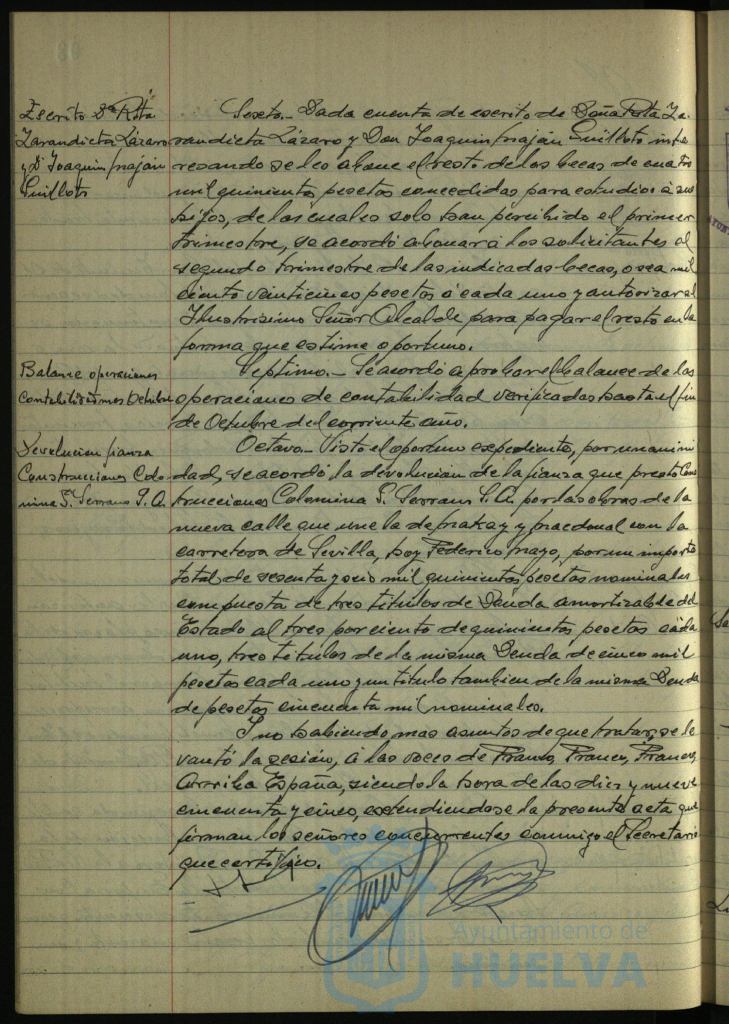 Escrito Dª Rita
Zarandieta Lázaro
y Dº Joaquin
Guillots
Sexto.- Dada cuenta de escrito de Doña Rita Za-
randieta Lázaro y Don Joaquin Guillots inte-
resando se les abone el resto de las becas de cuatro
mil quinientas pesetas concedidas para estudios á sus
hijos, de las cuales solo han percibido el primer
trimestre, se acordó abonar á los solicitantes el
segundo trimestre de las indicadas becas, o sea mil
ciento veinticinco pesetas á cada uno y autorizar al
Ilustrisimo Señor Alcalde para pagar el resto en la
forma que estime oportuno.
Balance operaciones
Contabilidad mes Octubre
Septimo.- Se acordó aprobar el balance de las
operaciones de contabilidad verificadas hasta el fin
de Octubre del corriente año.
Devolucion fianza
Construcciones Colo-
mina G. Serrano S.A.
Octavo.- Visto el oportuno expediente, por unanimi
dad, se acordó la devolucion de la fianza que prestó Cons
trucciones Colomina G. Serrano S.A. por las obras de la
nueva calle que une la de y con la
carretera de Sevilla, hoy Federico Mayo, por un importe
total de sesenta y seis mil quinientas pesetas nominales
compuesta de tres titulos de Deuda amortizable del
Estado al tres por ciento de quinientas pesetas cada
uno, tres titulos de la misma Deuda de cinco mil
pesetas cada uno y un titulo tambien de la misma Deuda
de pesetas cincuenta mil nominales.
Y no habiendo mas asuntos de que tratar, se le
vantó la sesión, á las voces de Franco, Franco, Franco,
Arriba España, siendo la hora de las diez y nueve
cincuenta y cinco, extendiendose la presente acta que
firman los señores concurrentes conmigo el Secretario
que certifico.
Ayuntamiento de
HUELVA